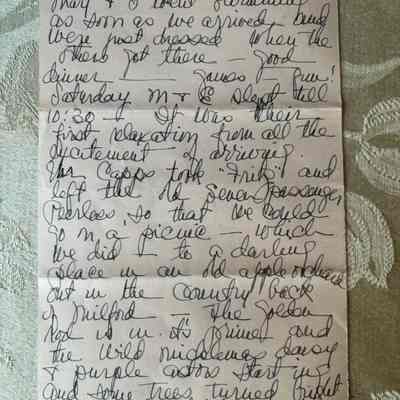 Mary & I went swimming
as soon as we arrived and
were just dressed when the
others got there — good
dinner — games — fun!
Saturday M & E slept till
10:30 — It was their
first relaxation from all the
excitement of arriving.
Mr Capps took "Fritz" and
left the old seven passenger
Peerless, so that we could
go on a picnic — which
we did — to a darling
place in an old apple orchard
out in the country back
of Milford — The golden
rod is in its prime and
the wild daisy
& purple asters starting
and some trees turned bright